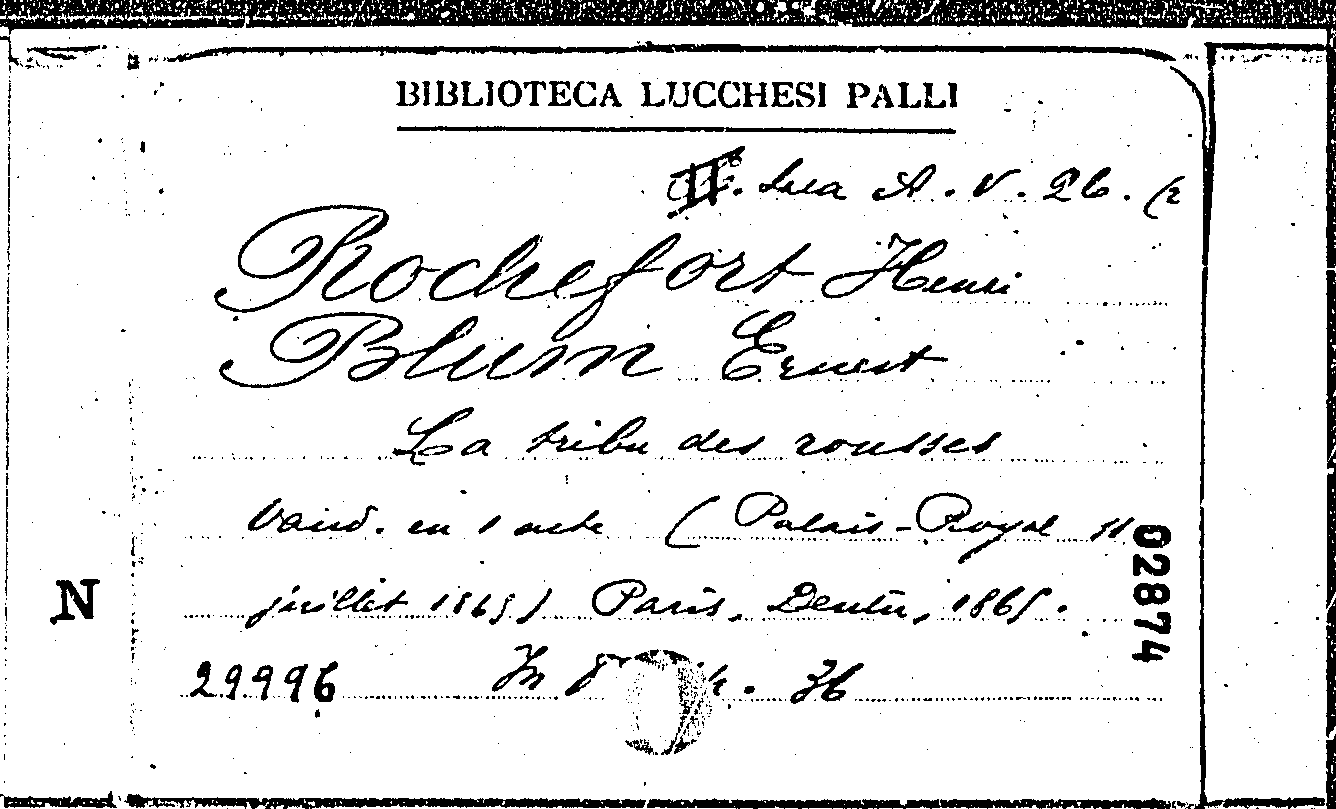 BIBLIOTECA LUCCHESI PALLI
Sala A. V. 26. (2
Rochefort Henri
Blum Ernest
La tribu des rousses
Vaud. en 1 acte (Palais-Royal 11
juillet 1865) Paris, Dentu, 1865.
29996 In 8° 36
N
02874